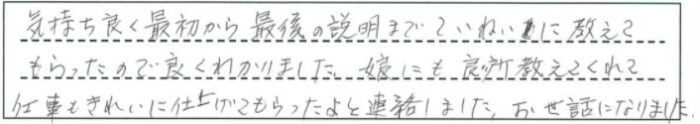 気持ち良く最初から最後の説明までていねいに教えて
もらったので良くわかりました。娘にも良所教えてくれて
仕事もきれいに仕上げてもらったよと連絡しました。お世話になりました。